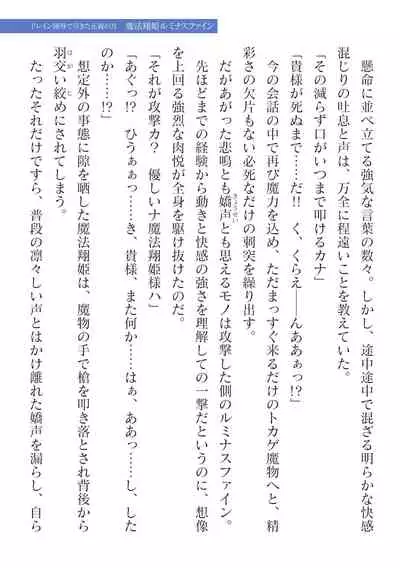 ドレイン開発で尽きた正義の刃　魔法翔姫ルミナスファイン
　懸命に並べ立てる強気な言葉の数々。しかし、途中途中で混ざる明らかな快感
混じりの吐息と声は、万全に程遠いことを教えていた。
「その減らず口がいつまで叩けるカナ」
「貴様が死ぬまで……だ!!　く、くらえ――んああぁっ!?」
　今の会話の中で再び魔力を込め、ただまっすぐ来るだけのトカゲ魔物へと、精
彩さの欠片もない必死なだけの刺突を繰り出す。
　だがあがった悲鳴とも嬌声とも思えるモノは攻撃した側のルミナスファイン。
　先ほどまでの経験から動きと快感の強さを理解しての一撃だというのに、想像
を上回る強烈な肉悦が全身を駆け抜けたのだ。
「それが攻撃カ？　優しいナ魔法翔姫様ハ」
「あぐっ!?　ひうぁぁっ……き、貴様、また何か……はぁ、ああっ……し、した
のか……!?」
　想定外の事態に隙を晒した魔法翔姫は、魔物の手で槍を叩き落とされ背後から
羽交い絞めにされてしまう。
　たったそれだけですら、普段の凛々しい声とはかけ離れた嬌声を漏らし、自ら